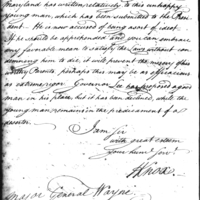 Maryland has written relatively to this unhappy
young man, which has been submitted to the Pres
ident. He is now accused of being a sort of ideot.
If he should be apprehended and you can embrace
any favorable mean to satisfy the Laws without con
demning him to die, it will prevent the misery of his
worthy Parents perhaps this may be as efficacious
as extreme rigor Governor Lee has proposed again
man in his place, his it has been declined, while the
young man remains in the predicament of a
deserter.
I am Sir
with great esteem
your hum Serv
H Knox
Major General Wayne